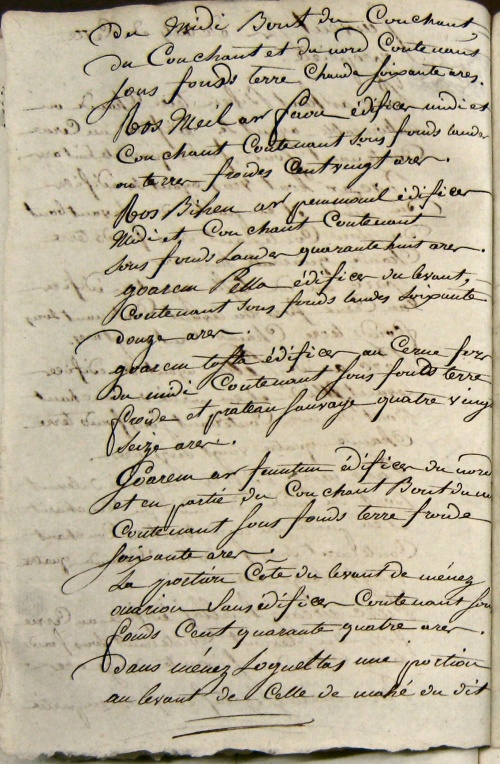 Du Midi Bout du Couchant,
du Couchant et du nord Contenant
sous fonds terre Chaude soixante ares.
Ros Meil ar faou édifices midi et
Couchant Contenant sous fonds landes
ou terres froides Cent vingt ares.
Ros Bihen ar édifices
Midi et Couchant Contenant
sous fonds Landes quarante huit ares.
goarem Pella édifices du levant,
Contenant sous fonds landes soixante
douze ares.
goarem tosta édifices au Cerne fors
du midi Contenant sous fonds terre
froide et prateau sauvage quatre vingt
seize ares.
Goarem ar feunteun édifices du nord
et en partie du Couchant Bout du
Contenant sous fonds terre froide
soixante ares.
La portion Côté du levant de ménez
Sans édifices Contenant sous
fonds Cent quarante quatre ares.
Dans ménez Loqueltas une portion
au levant de Celle de mahé du dit